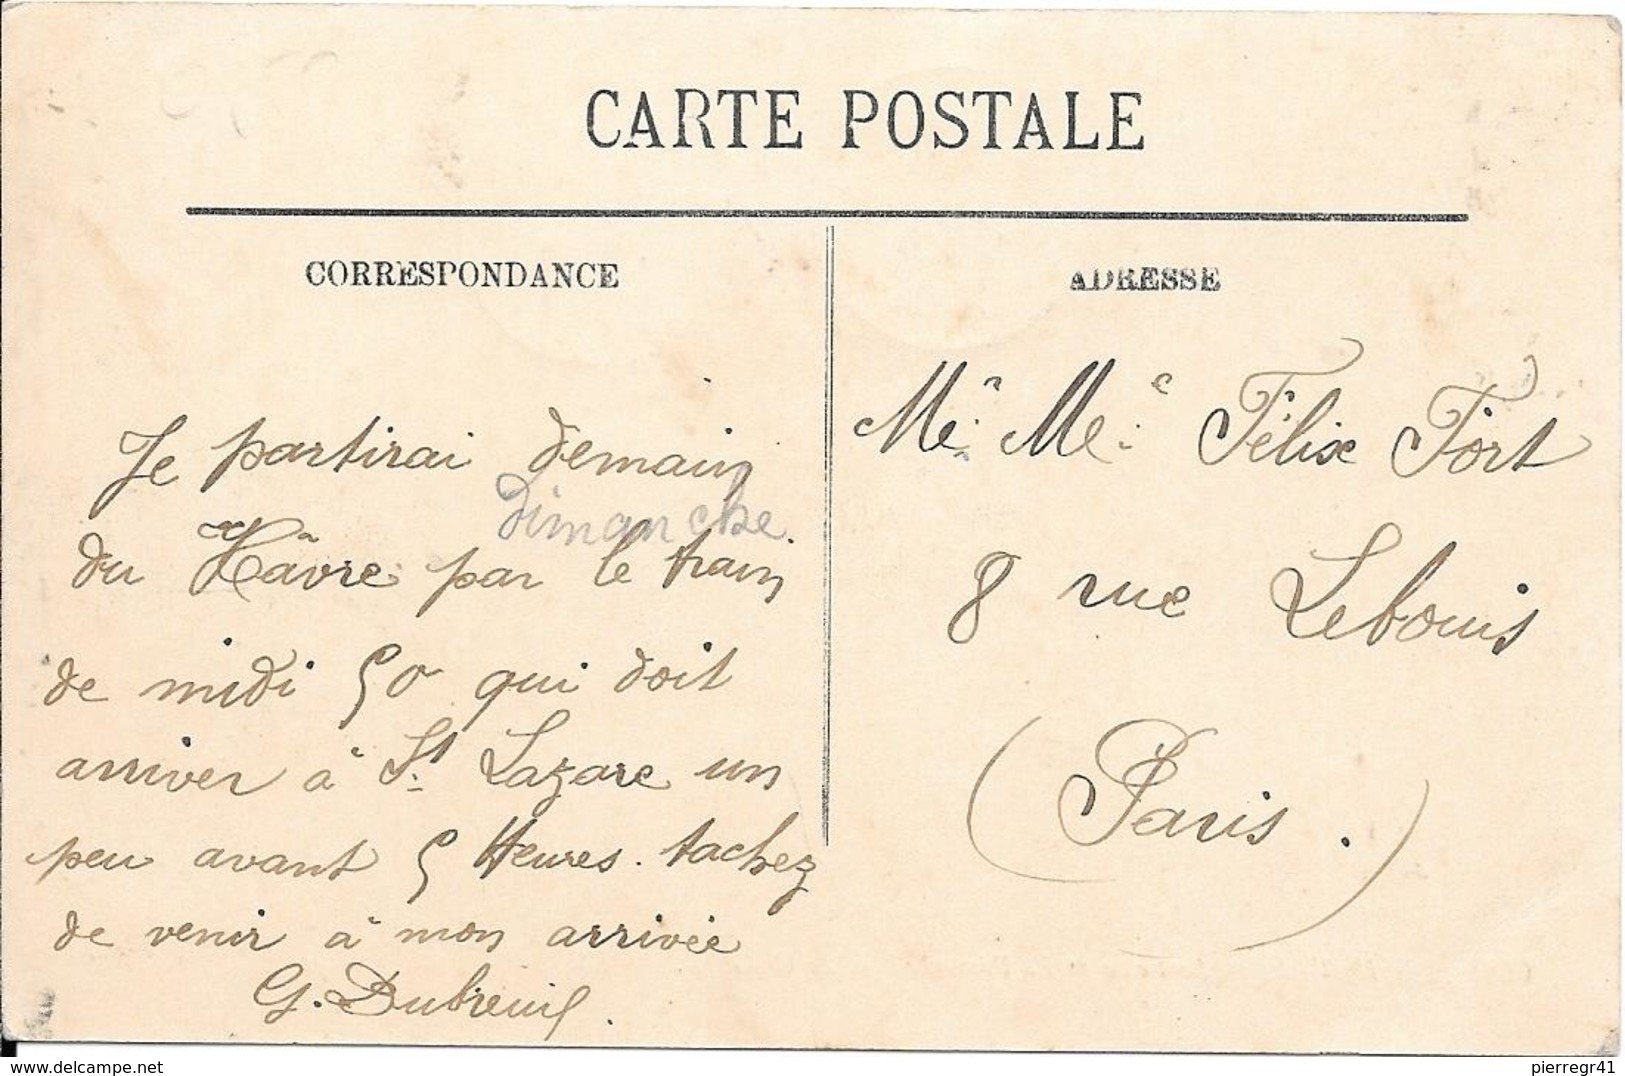 CARTE POSTALE
CORRESPONDANCE
Je partirai demain
dimanche
du Hâvre par le train
de midi 50 qui doit
arriver à St Lazare un
peu avant 5 Heures. tachez
de venir à mon arrivée
G. Dubreuil.
ADRESSE
Mr. Me. Félix Fort
8 rue Lebouis
(Paris.)
pierregr41